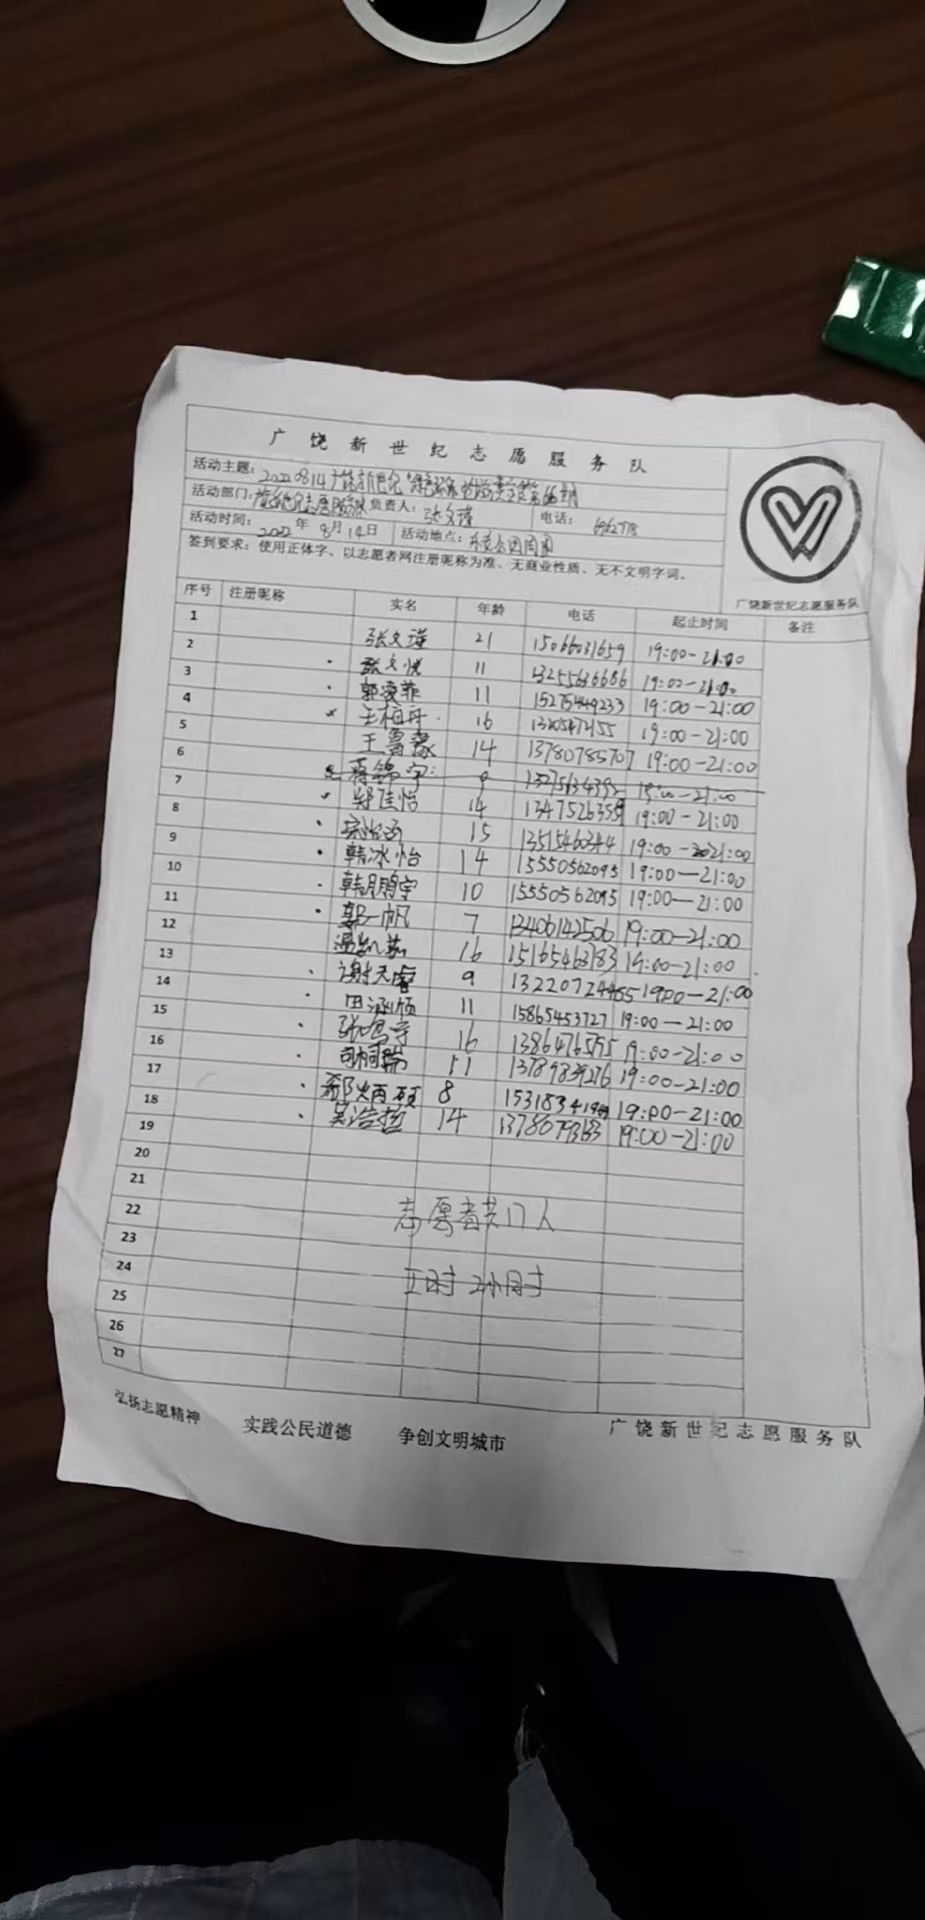 广饶新世纪志愿服务队
活动主题：20220814广饶新世纪
活动部门： 负责人：张文瑾 电话：6962778
活动时间：2022年8月14日 活动地点：乐安公园周围
签到要求：使用正体字、以志愿者网注册昵称为准、无商业性质、无不文明字词。
广饶新世纪志愿服务队
序号 注册昵称 实名 年龄 电话 起止时间 备注
1
2 张文瑾 21 15066031659 19:00-21:00
3 张文悦 11 19:00-21:00
4 郭凌菲 11 15275449233 19:00-21:00
5 王柏丹 16 19:00-21:00
6 王鲁豫 14 13780785707 19:00-21:00
7 蒋锦宇 9 19:00-21:00
8 郑佳怡 14 19:00-21:00
9 15 19:00-21:00
10 韩冰怡 14 15550562095 19:00-21:00
11 韩鹏宇 10 15550562095 19:00-21:00
12 郭一帆 7 13406142506 19:00-21:00
13 温凯茹 16 15165463183 19:00-21:00
14 谢天睿 9 19:00-21:00
15 田涵硕 11 15865453727 19:00-21:00
16 张鸣宇 16 19:00-21:00
17 司桐瑞 11 13789839276 19:00-21:00
18 郗炳硕 8 19:00-21:00
19 吴浩哲 14 19:00-21:00
20
21
22 志愿者共17人
23
24 工时 2小时
25
26
27
弘扬志愿精神 实践公民道德 争创文明城市 广饶新世纪志愿服务队